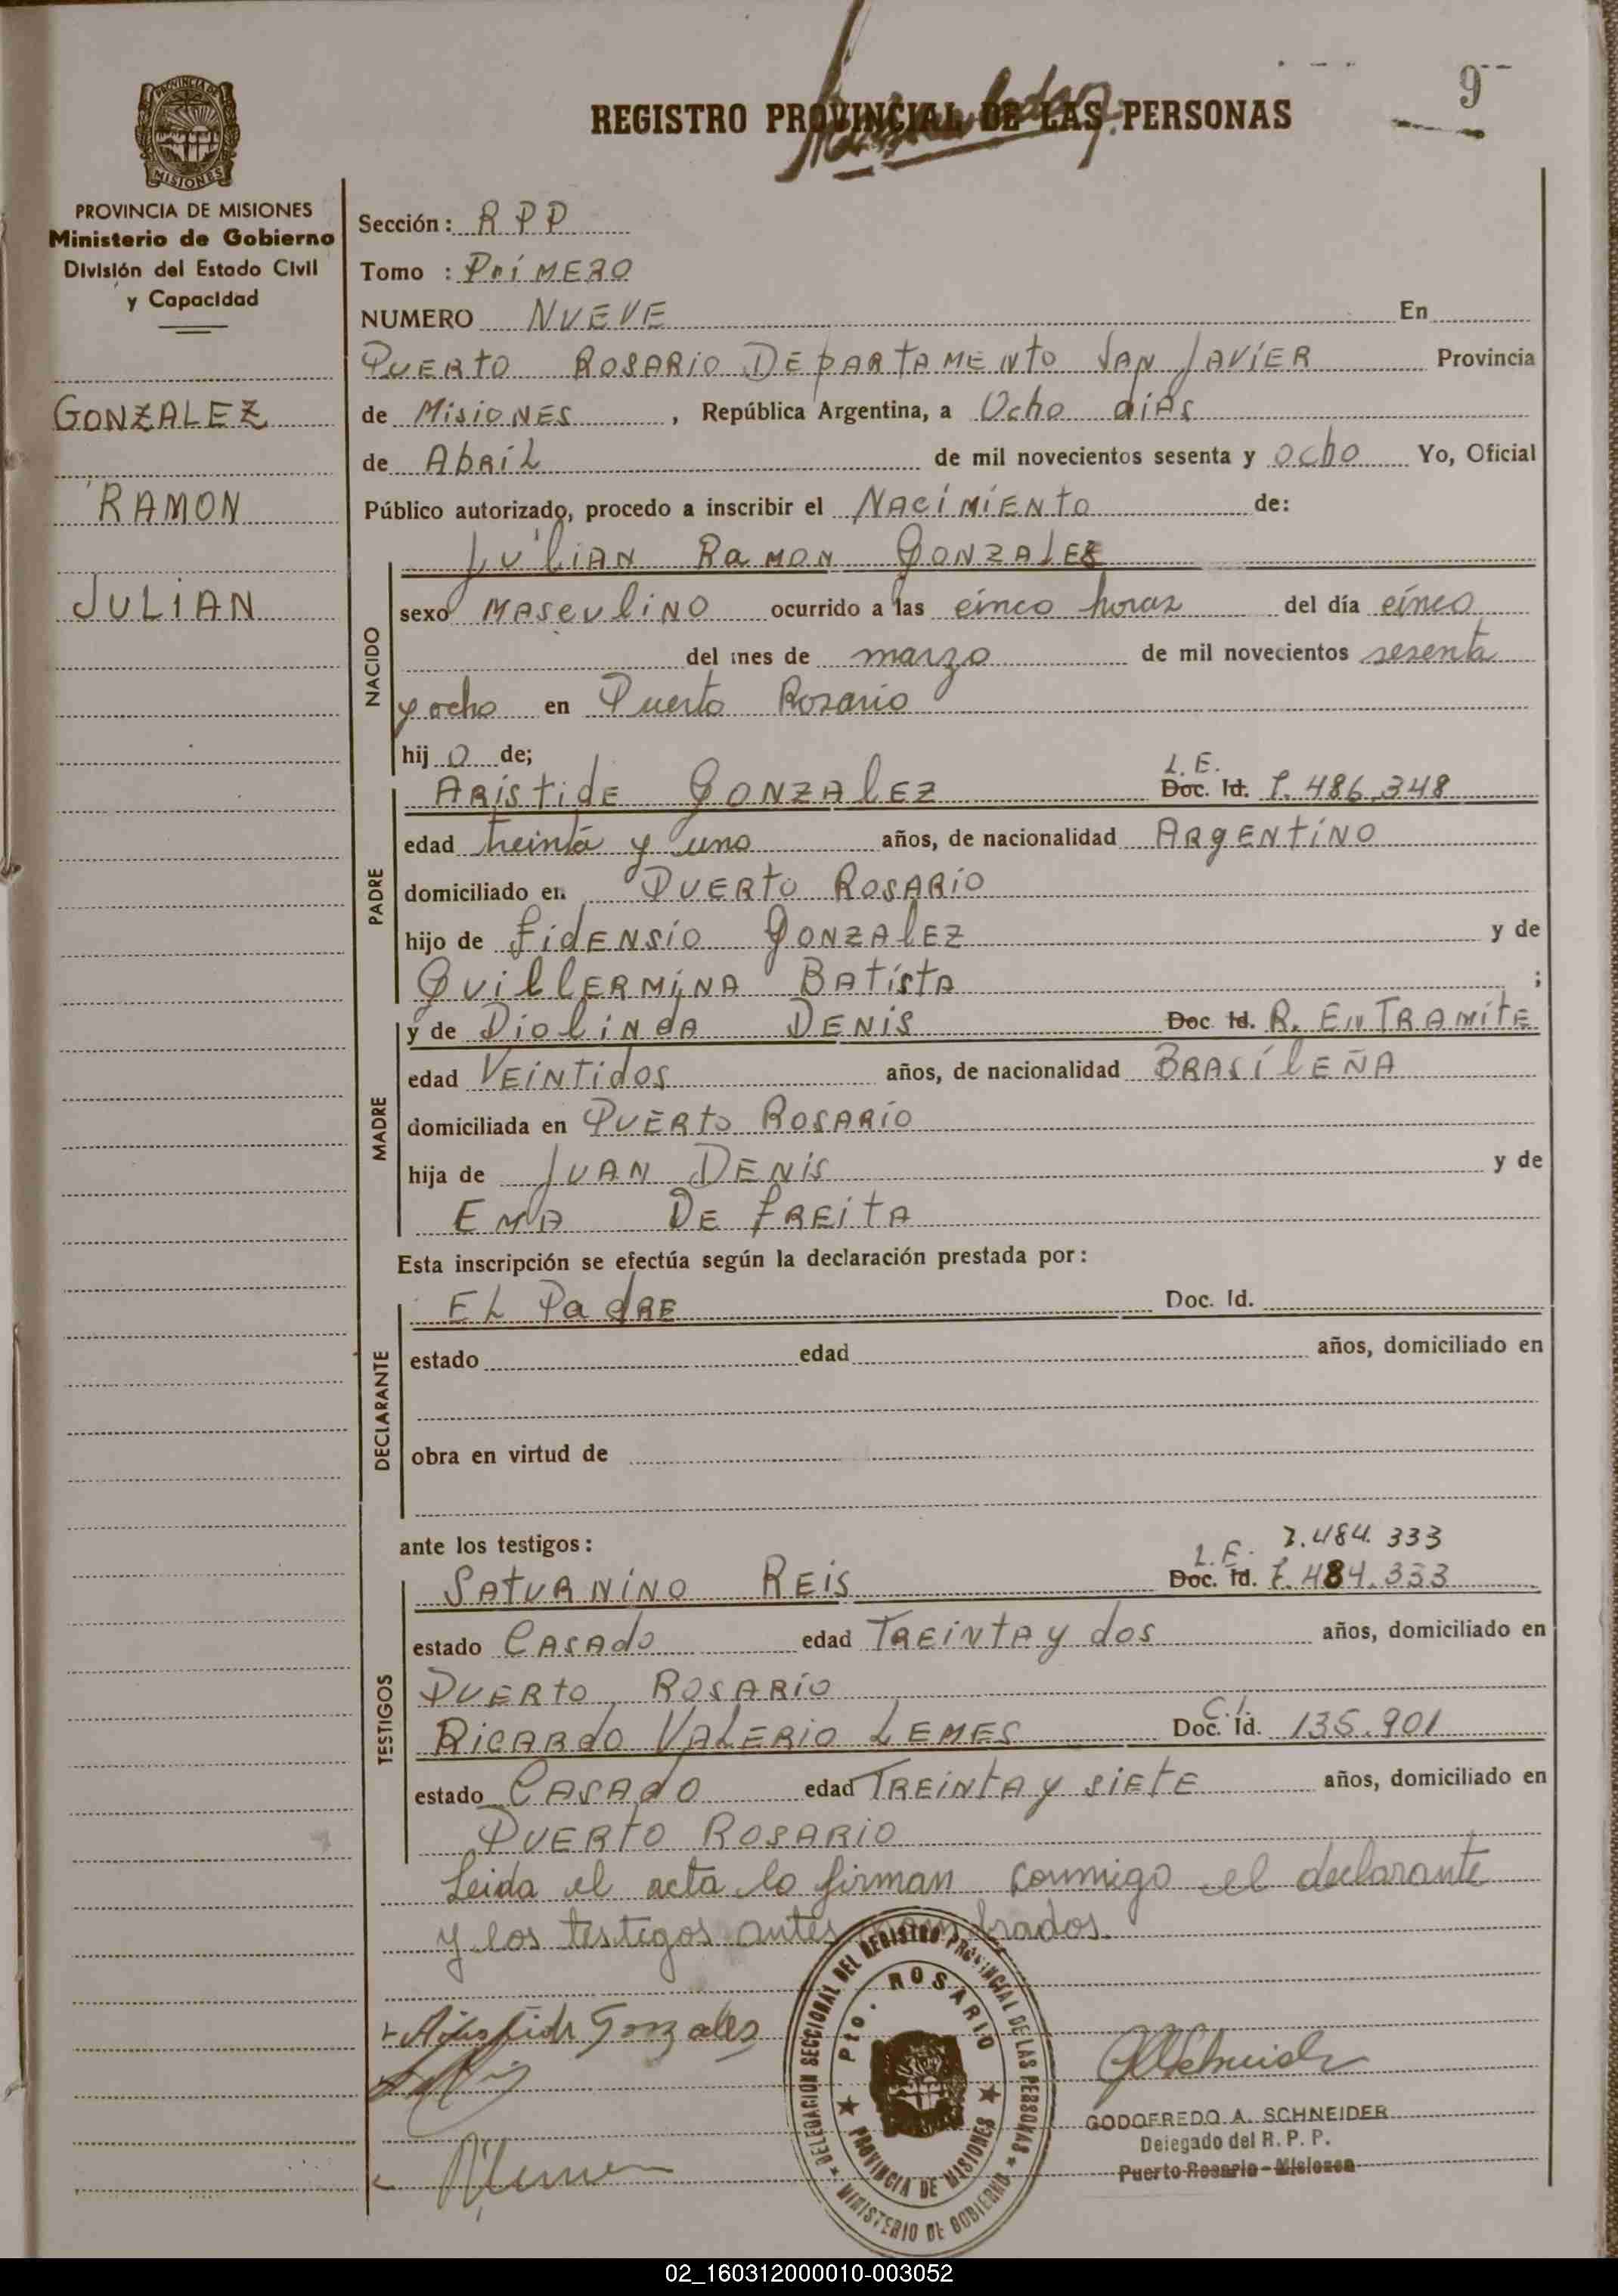 9
REGISTRO PROVINCIAL DE LAS PERSONAS
MISIONES
PROVINCIA DE MISIONES
Ministerio de Gobierno
División del Estado Civil
y Capacidad
GONZALEZ
RAMON
JULIAN
Sección: R P P
Tomo : PRIMERO
NUMERO NUEVE En
PUERTO ROSARIO DEPARTAMENTO SAN JAVIER Provincia
de MISIONES, República Argentina, a Ocho dias
de Abril de mil novecientos sesenta y ocho Yo, Oficial
Público autorizado, procedo a inscribir el NACIMIENTO de:
JULIAN RAMON GONZALEZ
NACIDO
sexo MASCULINO ocurrido a las cinco horas del día cinco
del mes de marzo de mil novecientos sesenta
y ocho en Puerto Rosario
hij o de;
L.E.
ARISTIDE GONZALEZ Doc. Id. 7.486.348
PADRE
edad treinta y uno años, de nacionalidad ARGENTINO
domiciliado en PUERTO ROSARIO
hijo de FIDENSIO GONZALEZ y de
GUILLERMINA BATISTA ;
y de DIOLINDA DENIS Doc Id. R. EN TRAMITE
MADRE
edad VEINTIDOS años, de nacionalidad BRASILEÑA
domiciliada en PUERTO ROSARIO
hija de JUAN DENIS y de
EMA DE FREITA
Esta inscripción se efectúa según la declaración prestada por:
EL PADRE Doc. Id.
DECLARANTE
estado edad años, domiciliado en
obra en virtud de
ante los testigos: 7.484.333
L.E.
SATURNINO REIS Doc. Id. 7.484.333
TESTIGOS
estado CASADO edad TREINTA y dos años, domiciliado en
PUERTO ROSARIO
C.I.
RICARDO VALERIO LEMES Doc. Id. 135.901
estado CASADO edad TREINTA y SIETE años, domiciliado en
PUERTO ROSARIO
Leida el acta lo firman conmigo el declarante
y los testigos antes nombrados.
Aristide Gonzales
DELEGACION SECCIONAL DEL REGISTRO PROVINCIAL DE LAS PERSONAS
Pto. ROSARIO
PROVINCIA DE MISIONES
MINISTERIO DE GOBIERNO
GODOFREDO A. SCHNEIDER
Delegado del R. P. P.
Puerto Rosario - Misiones
02_160312000010-003052